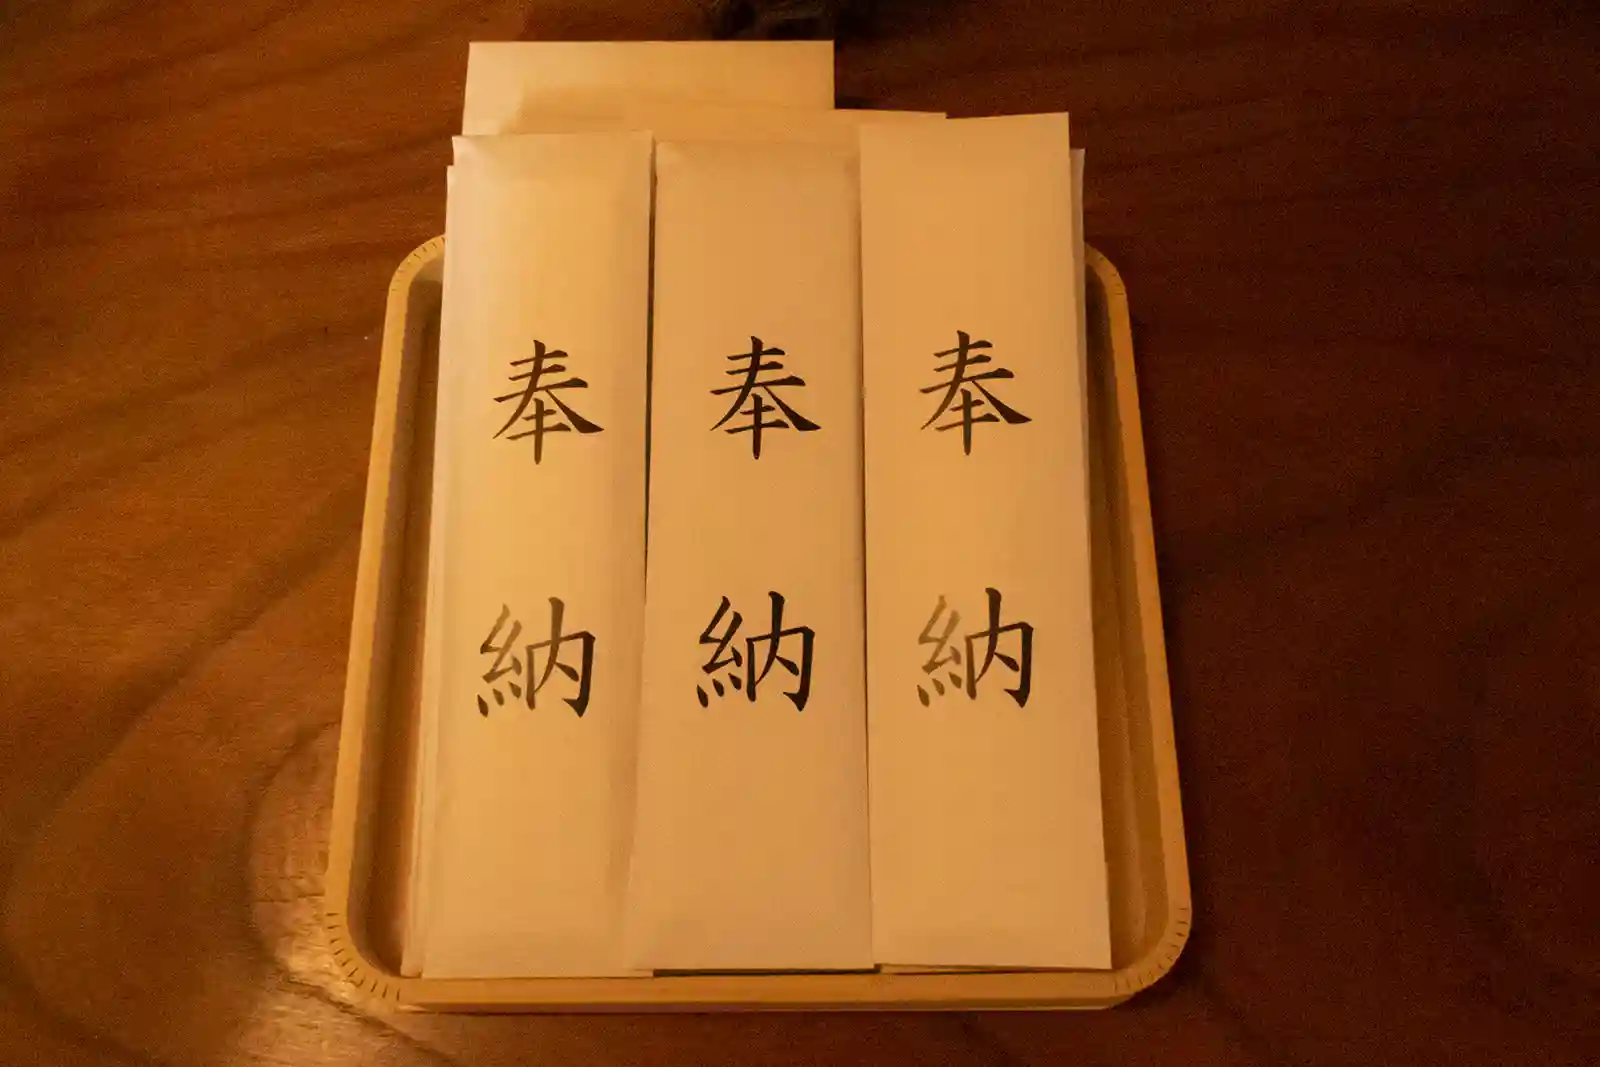 奉納
奉納
奉納